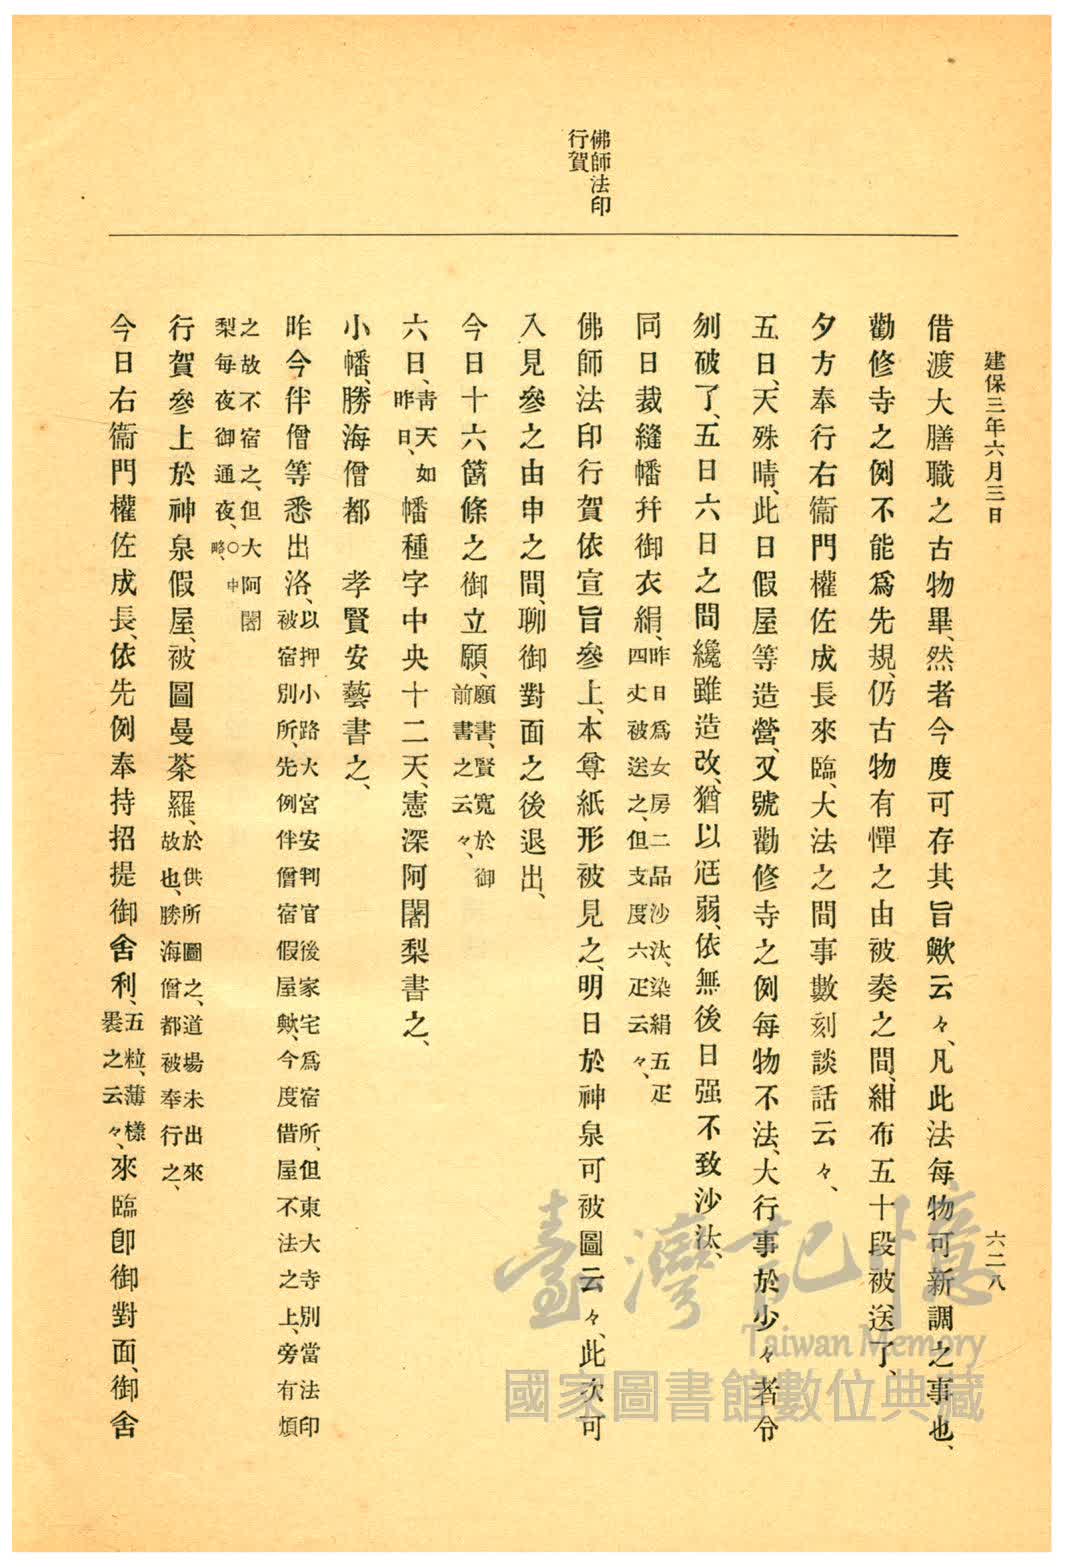 建保三年六月三日
六二八
佛師法印
行賀
借渡大膳職之古物畢、然者今度可存其旨歟云々、凡此法每物可新調之事也、
勸修寺之例不能爲先規、仍古物有憚之由被奏之間、紺布五十段被送了、
夕方奉行右衞門權佐成長來臨、大法之間事數刻談話云々、
五日、天殊晴、此日假屋等造營、又號勸修寺之例每物不法、大行事於少々者令
刎破了、五日六日之間纔雖造改、猶以尩弱、依無後日强不致沙汰、
同日裁縫幡幷御衣絹、昨日爲女房二品沙汰、染絹五疋
四丈被送之、但支度六疋云々、
佛師法印行賀依宣旨參上、本尊紙形被見之、明日於神泉可被圖云々、此次可
入見參之由申之間、聊御對面之後退出、
今日十六箇條之御立願、願書、賢寬於御
前書之云々、
六日、靑天如
昨日、幡種字中央十二天、憲深阿闍梨書之、
小幡、勝海僧都　孝賢安藝書之、
昨今伴僧等悉出洛、以押小路大宮安判官後家宅爲宿所、但東大寺別當法印
被宿別所、先例伴僧宿假屋歟、今度借屋不法之上、旁有煩
之故不宿之、但大阿闍
梨每夜御通夜、○中
略、
行賀參上於神泉假屋、被圖曼荼羅、於供所圖之、道場未出來
故也、勝海僧都被奉行之、
今日右衞門權佐成長、依先例奉持招提御舍利、五粒、薄樣
裹之云々、來臨卽御對面、御舍
臺灣記憶
Taiwan Memory
國家圖書館數位典藏